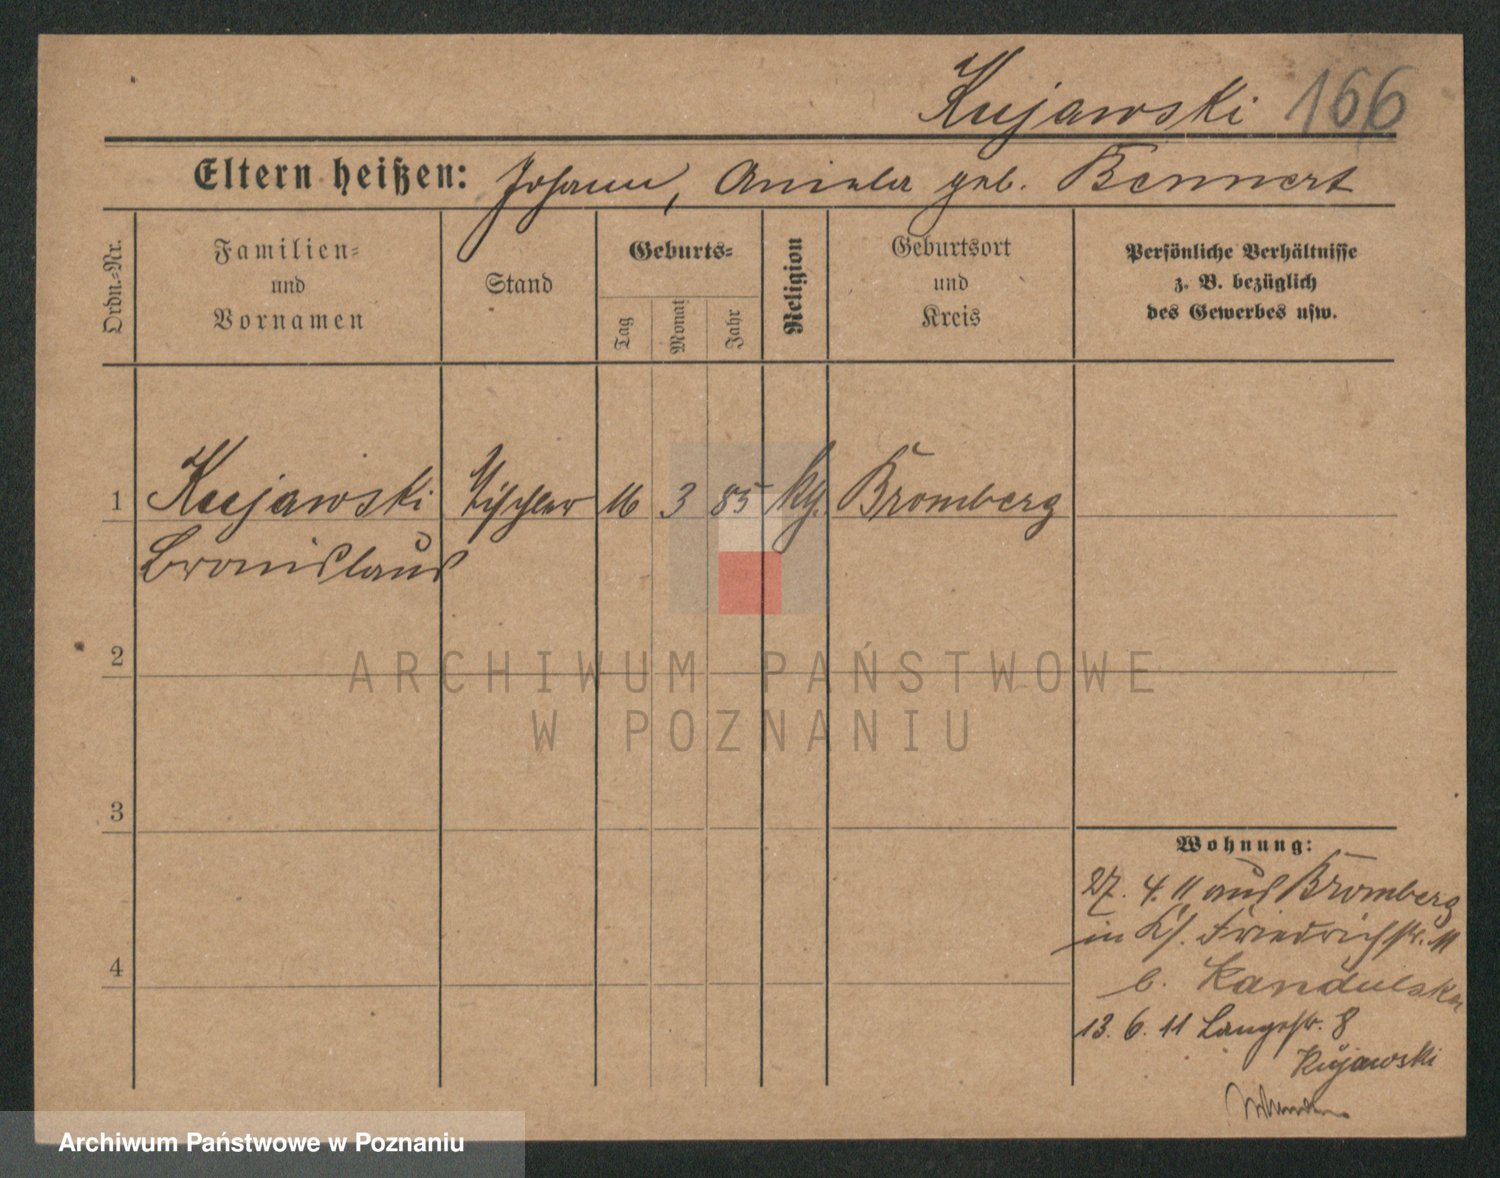 Kujawski 166
Eltern heißen: Johann, Aniela geb. Bennert
Ordn.=Nr.
Familien=
und
Vornamen
Stand
Geburts=
Tag
Monat
Jahr
Religion
Geburtsort
und
Kreis
Persönliche Verhältnisse
z. B. bezüglich
des Gewerbes usw.
1 Kujawski Tischler 16 3 85 kth. Bromberg
Bronislaus
2
3
4
Wohnung:
27. 4. 11 aus Bromberg
in Friedrichstr. 11
b. Kandulska
13. 6. 11 Langestr. 8
Kujawski
ARCHIWUM PAŃSTWOWE
W POZNANIU
Archiwum Państwowe w Poznaniu